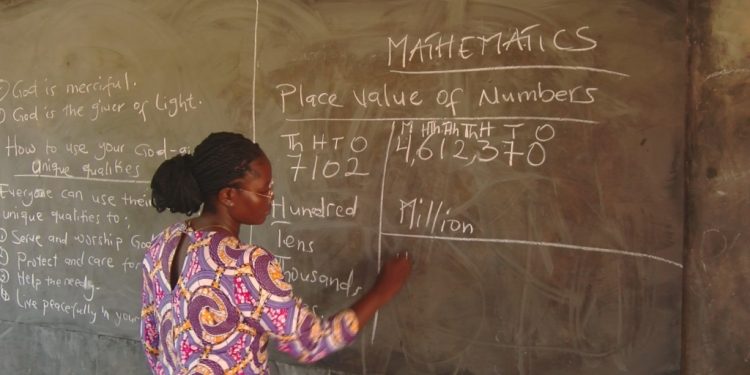 ① God is merciful.
② God is the giver of Light.
How to use your God-
Unique qualities
Everyone can use their
unique qualities to;
① Serve and worship God
② Protect and care for
③ Help the needy.
④ Live peacefully in your
MATHEMATICS
Place Value of Numbers
Th H T O
7102
Hundred
Tens
Thousands
M HTh TTh Th H T O
4,612,370
Million